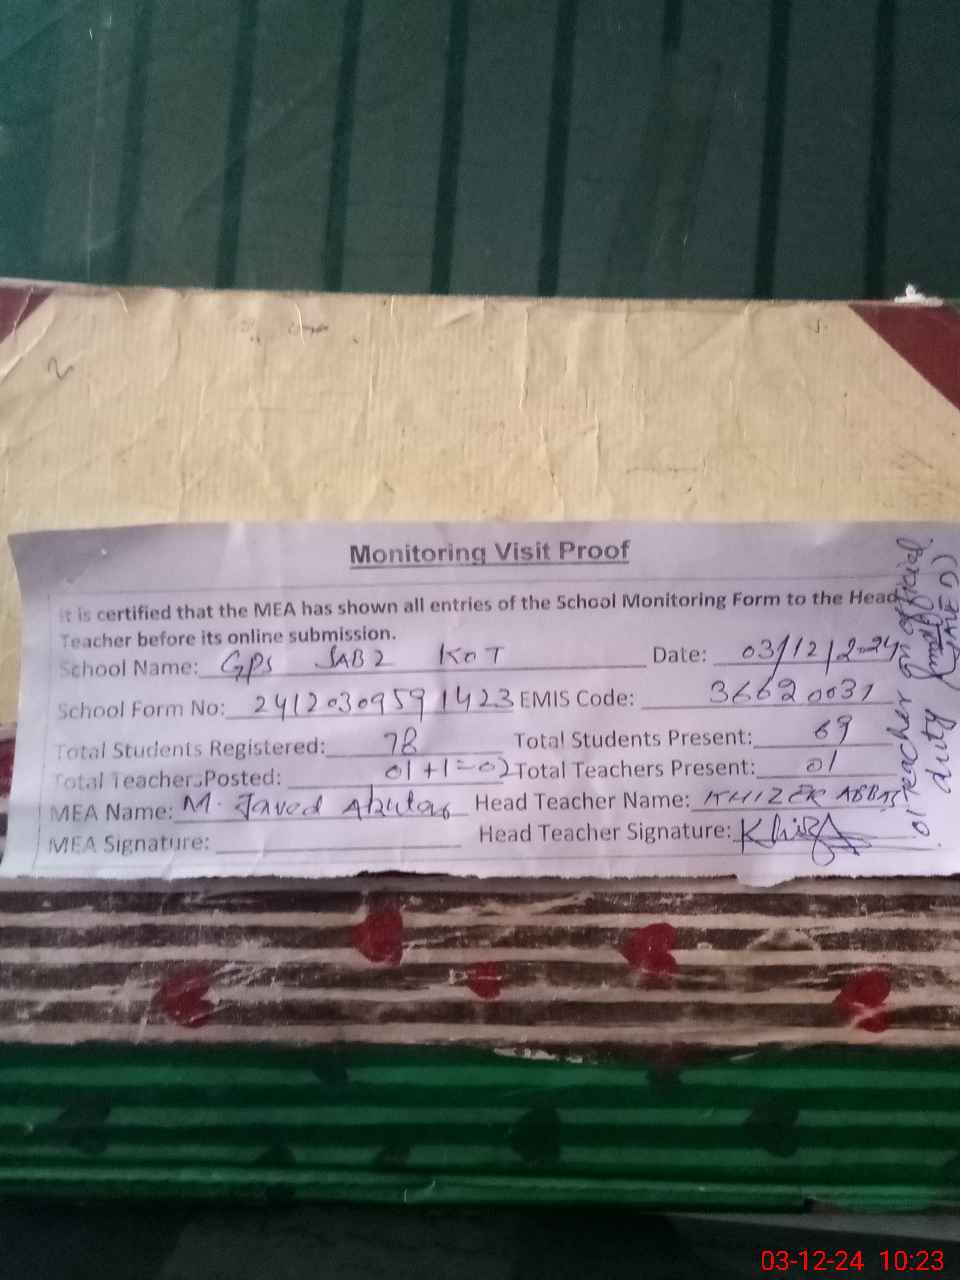 Monitoring Visit Proof
It is certified that the MEA has shown all entries of the School Monitoring Form to the Head
Teacher before its online submission.
School Name: GPS SABZ KOT Date: 03/12/2024
School Form No: 2412030959 1423 EMIS Code: 36620031
Total Students Registered: 78 Total Students Present: 69
Total Teachers Posted: 01+1=02 Total Teachers Present: 01
MEA Name: M. Javed Head Teacher Name: KHIZER ABBAS
MEA Signature: Head Teacher Signature:
01 Teacher on official
duty
03-12-24 10:23